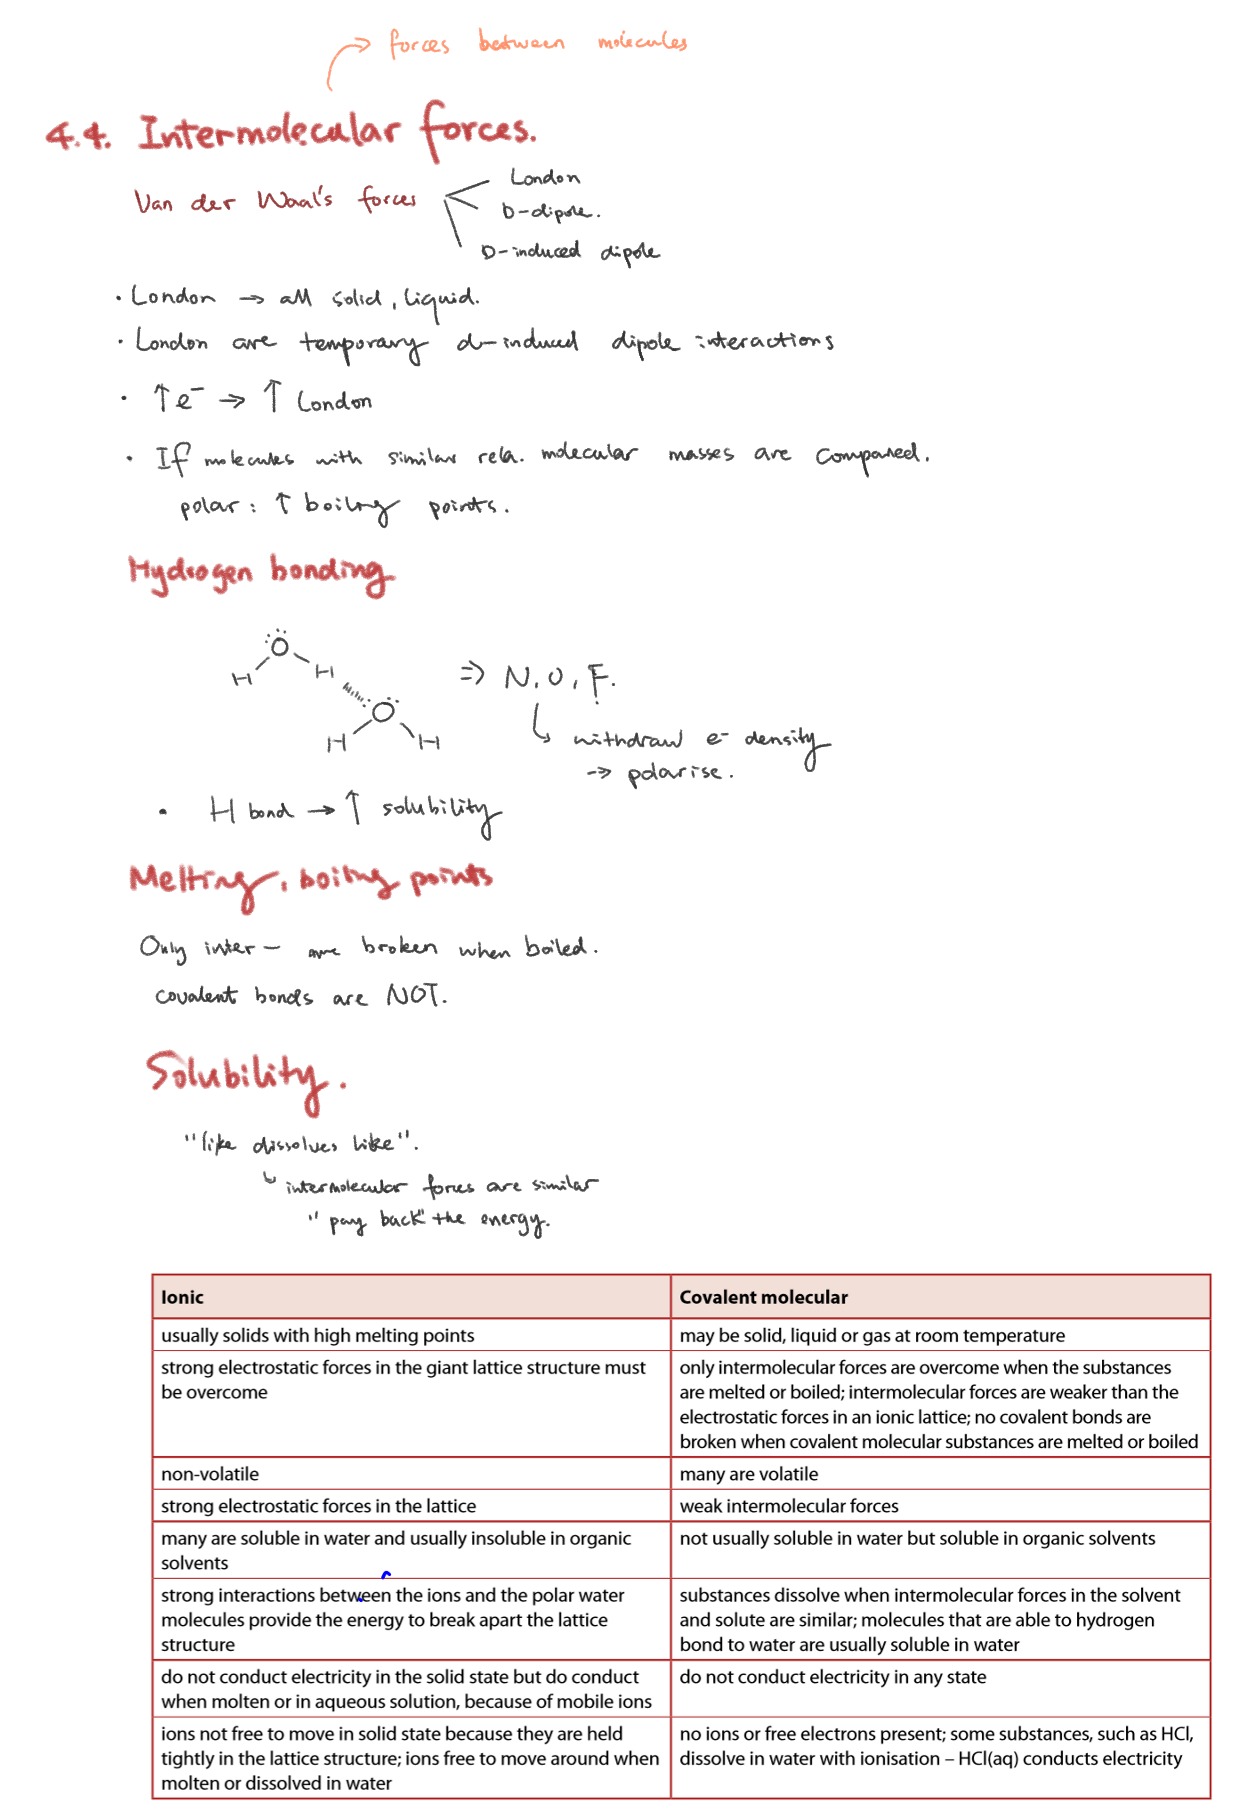 forces between molecules
4.4. Intermolecular forces.
Van der Waal's forces
London
D-dipole.
D-induced dipole
· London → all solid, liquid.
· London are temporary d-induced dipole interactions
· ↑e⁻ → ↑ London
· If molecules with similar rela. molecular masses are compared.
polar: ↑ boiling points.
Hydrogen bonding
O
H H
⇒ N, O, F.
O
H H
withdraw e⁻ density
→ polarise.
· H bond → ↑ solubility
Melting, boiling points
Only inter- are broken when boiled.
covalent bonds are NOT.
Solubility.
"like dissolves like".
intermolecular forces are similar
"pay back" the energy.
Ionic
Covalent molecular
usually solids with high melting points
may be solid, liquid or gas at room temperature
strong electrostatic forces in the giant lattice structure must
be overcome
only intermolecular forces are overcome when the substances
are melted or boiled; intermolecular forces are weaker than the
electrostatic forces in an ionic lattice; no covalent bonds are
broken when covalent molecular substances are melted or boiled
non-volatile
many are volatile
strong electrostatic forces in the lattice
weak intermolecular forces
many are soluble in water and usually insoluble in organic
solvents
not usually soluble in water but soluble in organic solvents
strong interactions between the ions and the polar water
molecules provide the energy to break apart the lattice
structure
substances dissolve when intermolecular forces in the solvent
and solute are similar; molecules that are able to hydrogen
bond to water are usually soluble in water
do not conduct electricity in the solid state but do conduct
when molten or in aqueous solution, because of mobile ions
do not conduct electricity in any state
ions not free to move in solid state because they are held
tightly in the lattice structure; ions free to move around when
molten or dissolved in water
no ions or free electrons present; some substances, such as HCl,
dissolve in water with ionisation – HCl(aq) conducts electricity